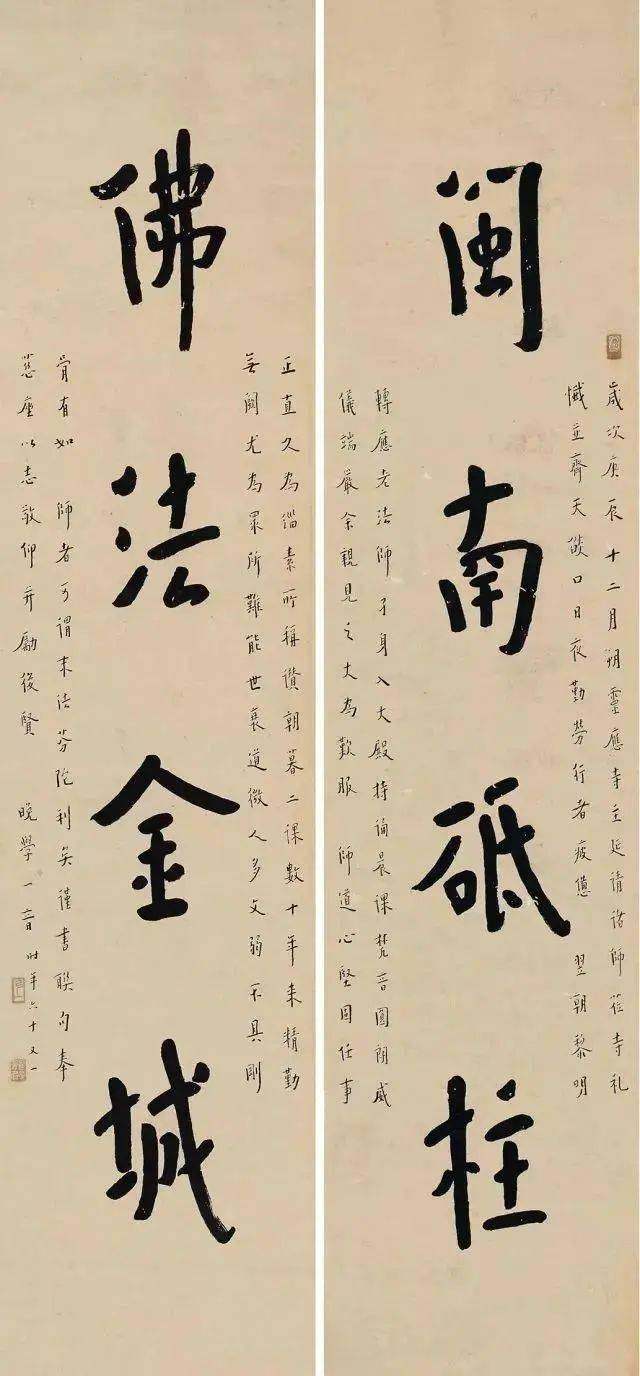 閩南砥柱
歲次庚辰十二月朔靈應寺主延請諸師莅寺礼
懺立齊天燄口日夜勤勞行者疲憊 翌朝黎明
轉應老法師孑身入大殿持誦晨課梵音圓朗威
儀端嚴余親見之大為歎服 師道心堅固任事
佛法金城
正直久為緇素所稱讚朝暮二課數十年来精勤
無闕尤為眾所難能世衰道微人多文弱不具剛
骨有如 師者可謂末法芬陀利矣謹書聯句奉
慈座以志敬仰并勵後賢 晚學一音時年六十又一